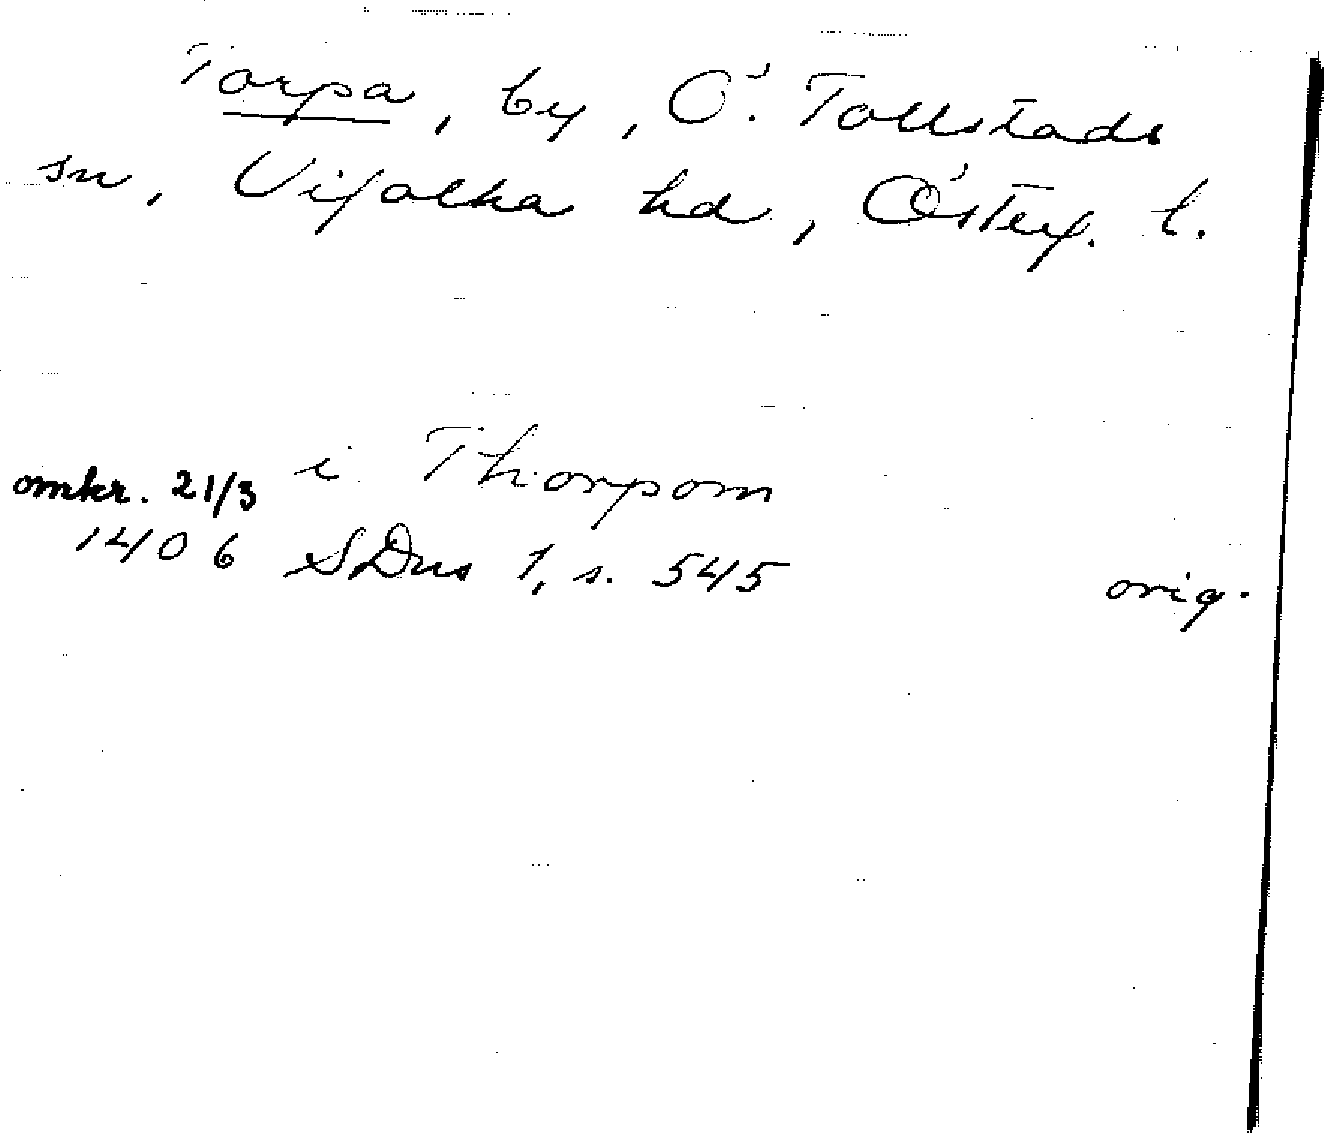 Torpa, by, Ö. Tollstads
sn, Vifolka hd, Österg. l.
omkr. 21/3 i Thorpom
1406 SDns 1, s. 545 orig.